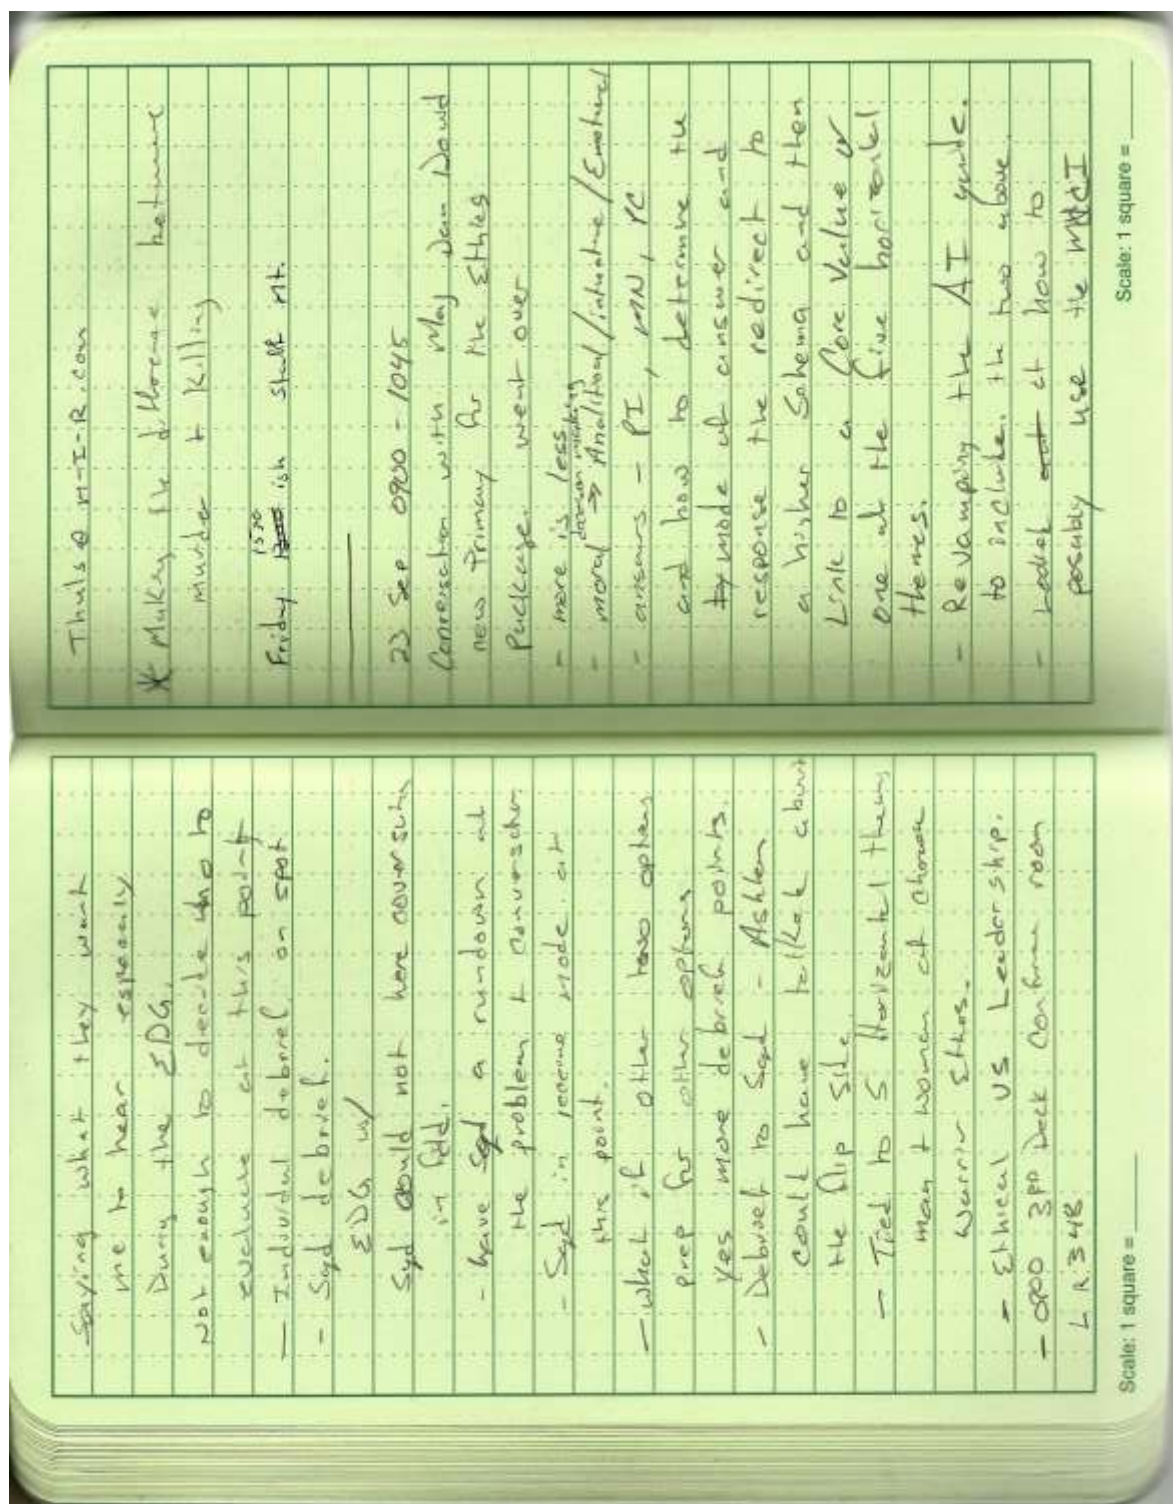 Saying what they want
me to hear especially
During the EDG.
Not enough to decide who to
evaluate at this point
— Individual debrief on spot
- Sqd debrief.
EDG w/
Sqd could not have conversation
in field.
- have Sqd a rundown of
the problem & conversation.
- Sqd in receive mode at
this point.
— what if other two options
prep for other options
yes more debrief points.
- Debrief to Sqd - Ashlem
could have talked about
the flip side.
— Tied to 5 Horizontal themes
man & woman of character
Warrior Ethos.
- Ethical vs Leadership.
- 0900 3PD Deck Confrence room
L R 348
Scale: 1 square =
Thuls @ H-I-R.com
* Making the difference between
murder & killing
Friday 1530 ish staff mt.
23 Sep 0900 - 1045
Conversation with Maj Dan Dowd
new Primary for the Ethics
Package. went over
- more is less
- moral decision making → Analitical / intuative / Emotional
- answers - PI, MN, YC
and how to determine the
mode of answer and
response the redirect to
a higher Schema and then
Link to a Core Value or
one of the five horizontal
themes.
- Revamping the AI guide.
to include the two above.
- Looked at how to
possibly use the MACI
Scale: 1 square =